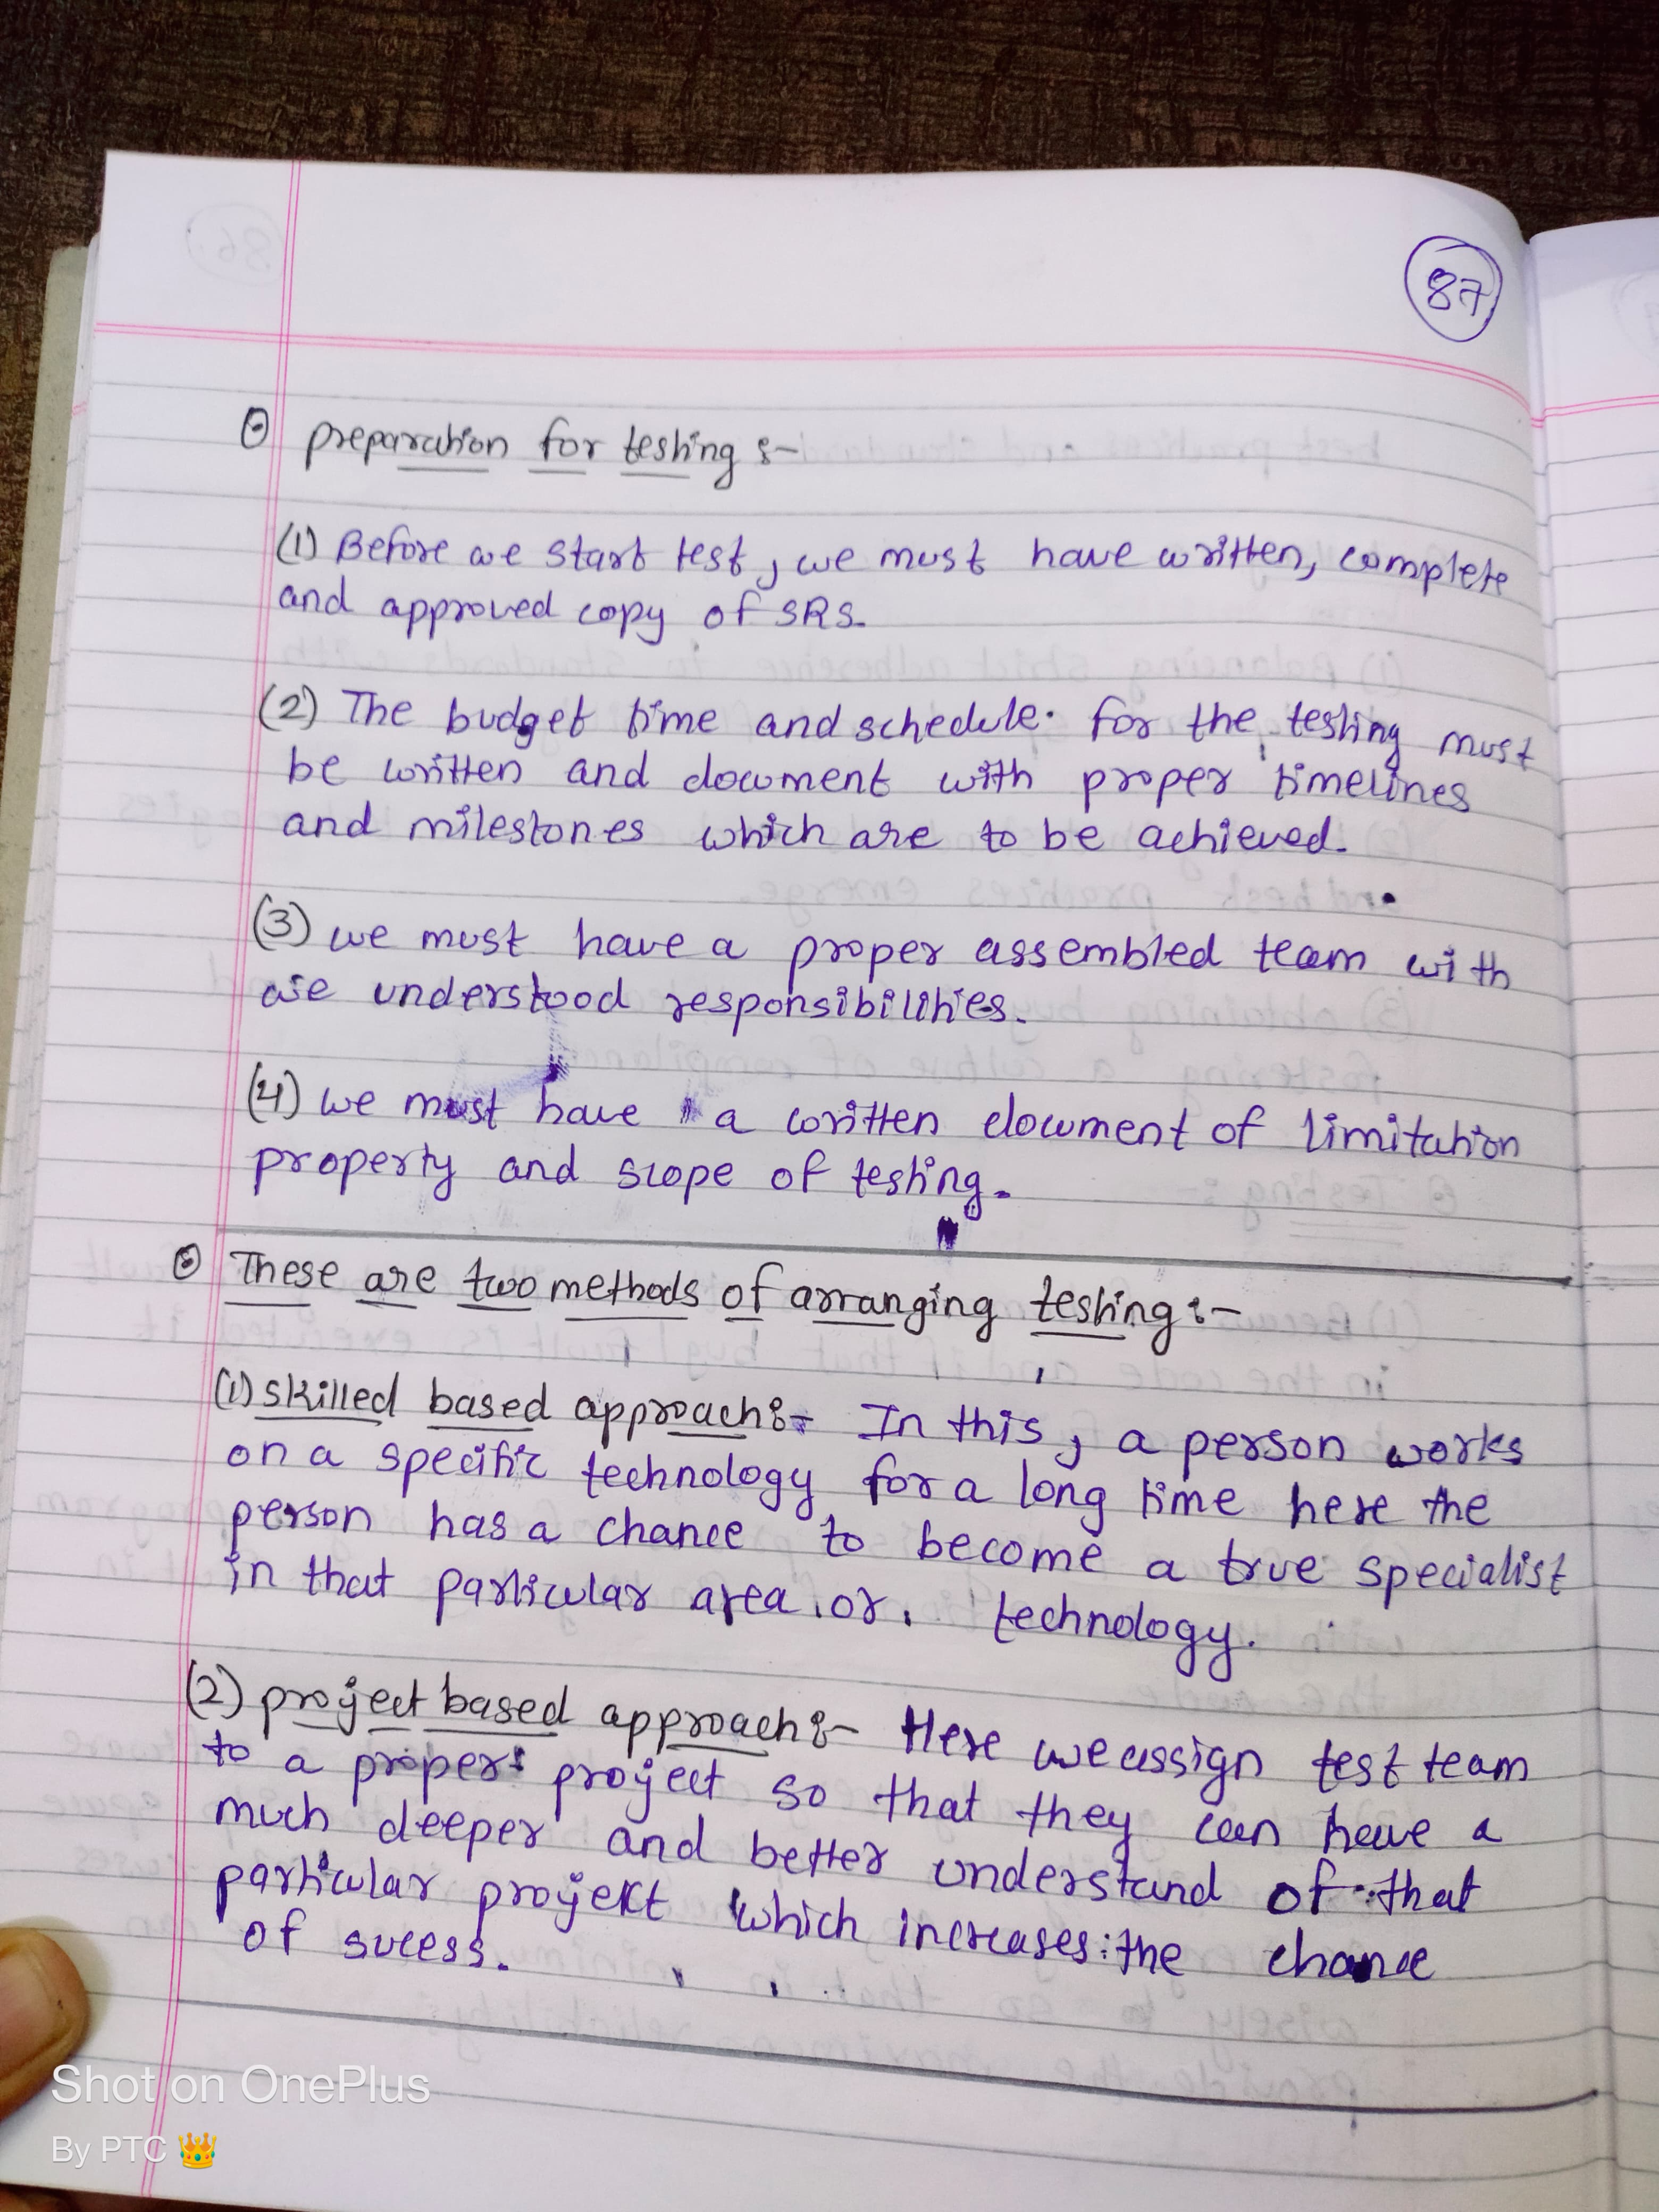 87
preparation for testing :-
(1) Before we start test, we must have written, complete
and approved copy of SRS.
(2) The budget time and schedule. for the testing must
be written and document with proper timelines
and milestones which are to be achieved.
(3) we must have a proper assembled team with
understood responsibilities.
(4) we must have a written document of limitation
property and scope of testing.
These are two methods of arranging testing :-
(1) skilled based approach :- In this, a person works
on a specific technology for a long time here the
person has a chance to become a true specialist
in that particular area or technology.
(2) project based approach :- Here we assign test team
to a proper project so that they can have a
much deeper and better understand of that
particular project which increases the chance
of sucess.
Shot on OnePlus
By PTC